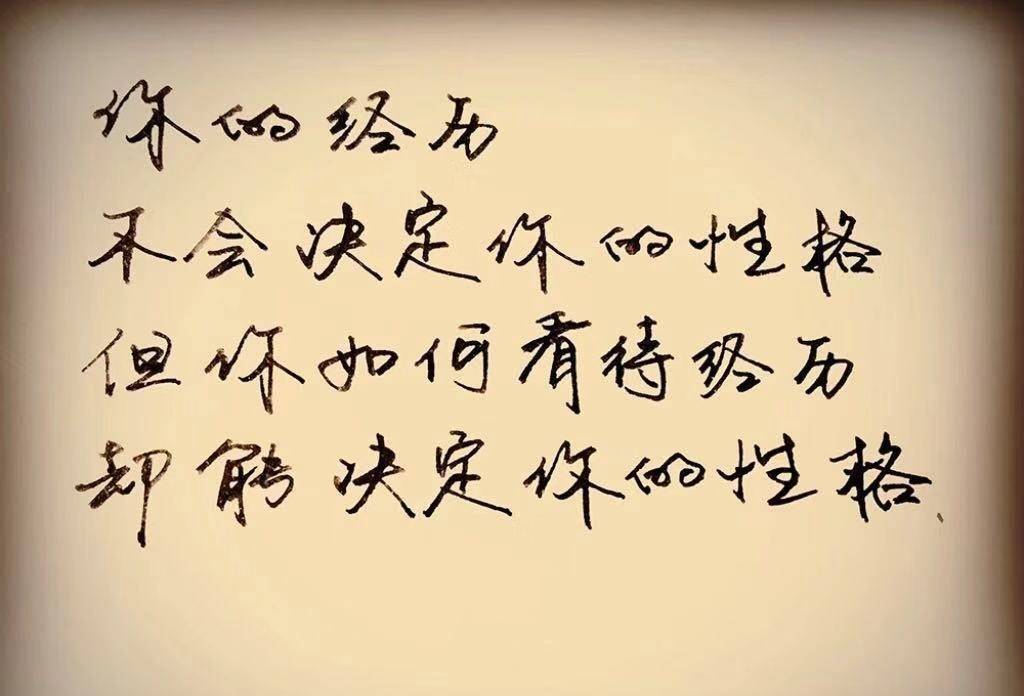 你的经历
不会决定你的性格
但你如何看待经历
却能决定你的性格、